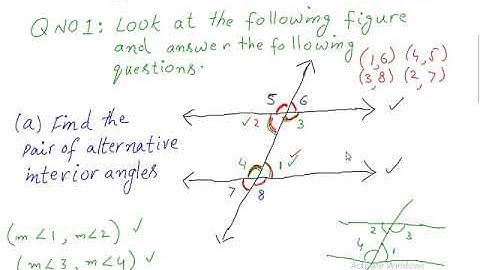 Q NO1: Look at the following figure
and answer the following
questions.
(1,6) (4,5)
(3,8) (2,7)
(a) Find the
pair of alternative
interior angles
5 6
✓2 3
4 1 ✓
7 8
(m∠1, m∠2) ✓
(m∠3, m∠4) ✓
2 3
4 1
Activate Windows